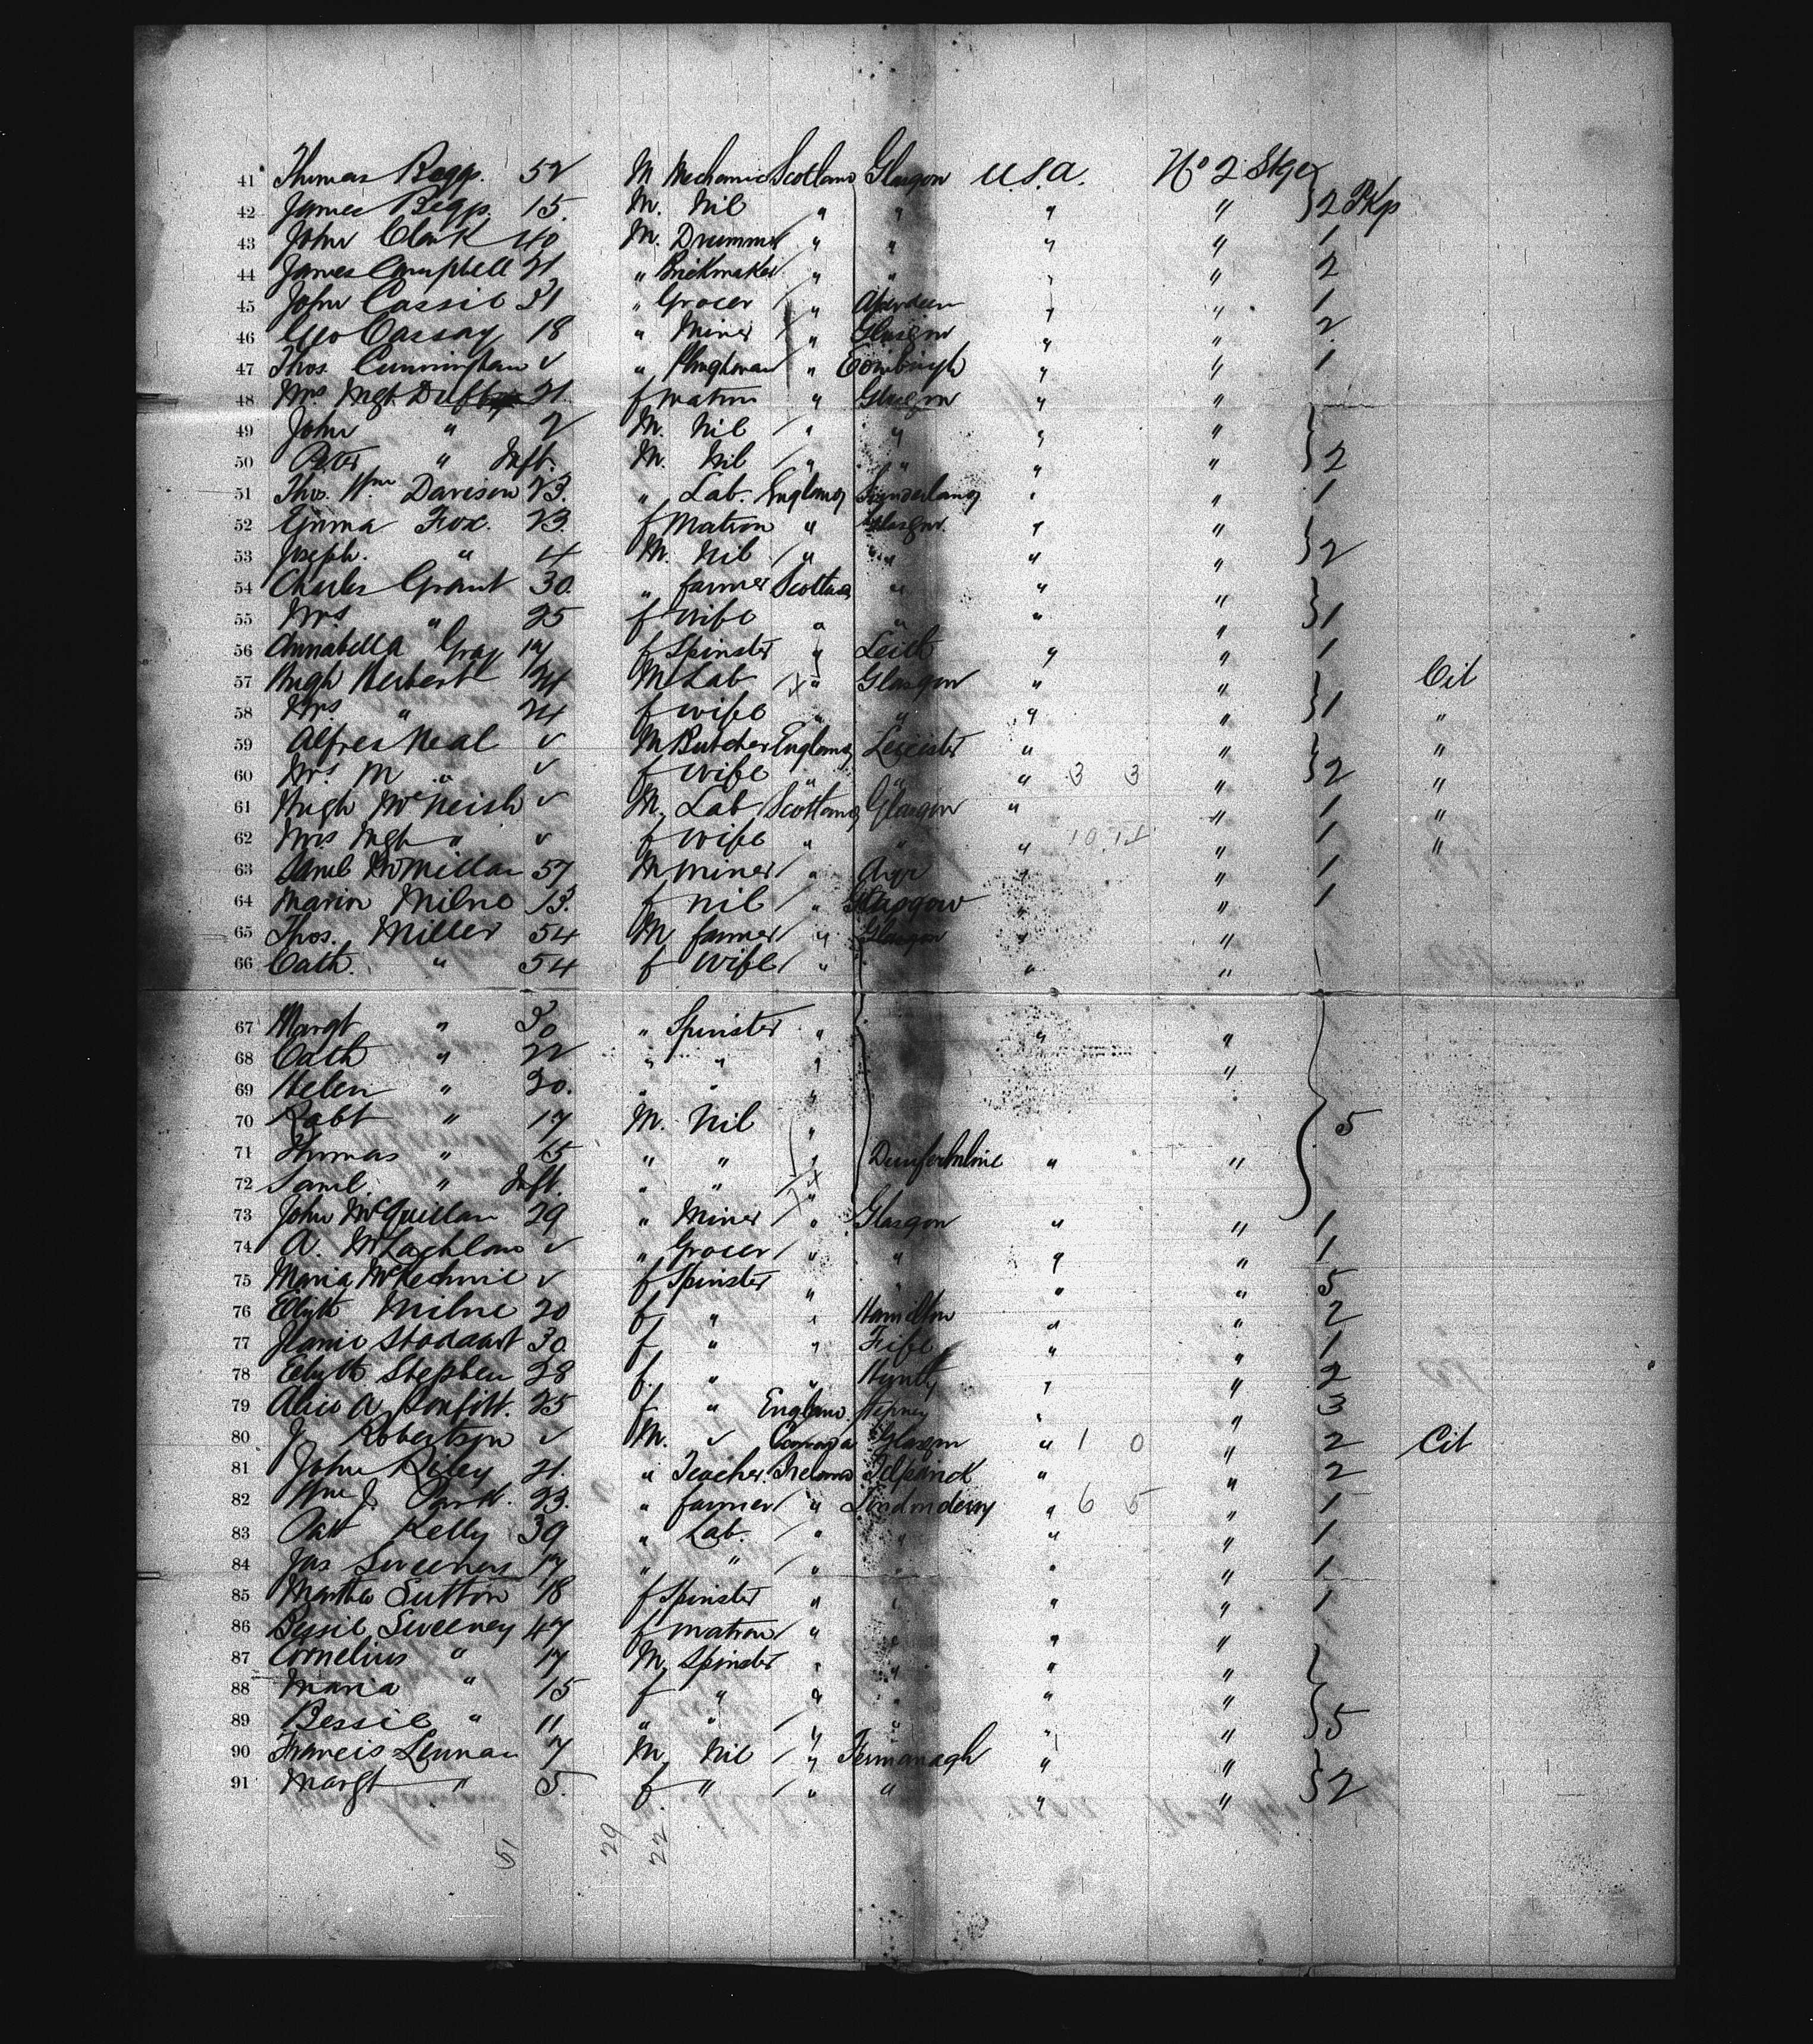 41 Thomas Begg. 52 M Mechanic Scotland Glasgow U.S.A. No 2 Stge
42 James Begg. 15. M. Nil " " " " } 2 Pkg
43 John Clark 40 M. Drummer " " " " 1
44 James Campbell 21 " Brickmaker " " " " 2
45 John Cassie 31 " Grocer " Aberdeen " " 1
46 Geo Cassay 18 " Miner " Glasgow " " 2
47 Thos. Cunningham v " Ploughman " Edinburgh " " 1
48 Mrs Mgt 21. f matron " Glasgow " "
49 John " 2 M. Nil " " " "
50 Peter " Inft. M. Nil " " " " } 2
51 Thos. Wm Davison 23. " Lab. England Sunderland " " 1
52 Emma Fox. 23. f Matron " Glasgow. " "
53 Joseph. " 4 M. Nil " " " " } 2
54 Charles Grant 30. " farmer Scotland " " "
55 Mrs " 25 f wife " " " " } 1
56 Annabella Gray 19 f Spinster " Leith " " 1
57 Hugh Herbert 24 M Lab " Glasgow " " Cit
58 Mrs. " 24 f wife " " " " } 1 "
59 Alfred Neal v M Butcher England Leicester " " "
60 Mrs. M " v f wife " " " 3 3 " } 2 "
61 Hugh McNeish v M. Lab Scotland Glasgow " " 1 "
62 Mrs Mgt " v f wife " " " " 1 "
63 Saml McMillan 57 M miner " Ayr " " 1
64 Marion Milne 13. f nil " Glasgow " " 1
65 Thos. Miller 54 M farmer " Glasgow " "
66 Cath. " 54 f Wife " " "
67 Margt " 30 " Spinster " " "
68 Cath " 22 " " " "
69 Helen " 20. " " "
70 Robt " 17 M. Nil " 5
71 Thomas " 15 " " " Dunfermline " "
72 Saml. " Inft. " " "
73 John McQuillan 29 " Miner " Glasgow " " 1
74 A. McLachlan v " Grocer " " " " 1
75 Maria McKechnie v f Spinster " " " " 5
76 Elizth Milne 20 f " " Hamilton " " 2
77 Jeanie Stoddart 30 f " " Fife " " 1
78 Elizth Stephen 28 f. " " Huntly " " 2
79 Alice A. 25 f " England Stepney " " 3
80 J. Robertson v M. v Canada Glasgow " 1 0 " 2 Cit
81 John Riley 21. " Teacher. Ireland " " 2
82 Wm J. Park. 23. " farmer " Londonderry " 6 5 " 1
83 Patt Kelly 39 " Lab. " " " " 1
84 Jas Sweeney 17 " " " " " " 1
85 Martha Sutton 18 f Spinster " " " " 1
86 Bessie Sweeney 47 f matron " " " "
87 Cornelius " 17 M. Spinster " " " "
88 Maria " 15 f " " " " "
89 Bessie " 11 " " " " " " } 5
90 Francis Lennan 7 M. Nil " Fermanagh " "
91 Margt " 5. f. " " " " " } 2
51 29 22